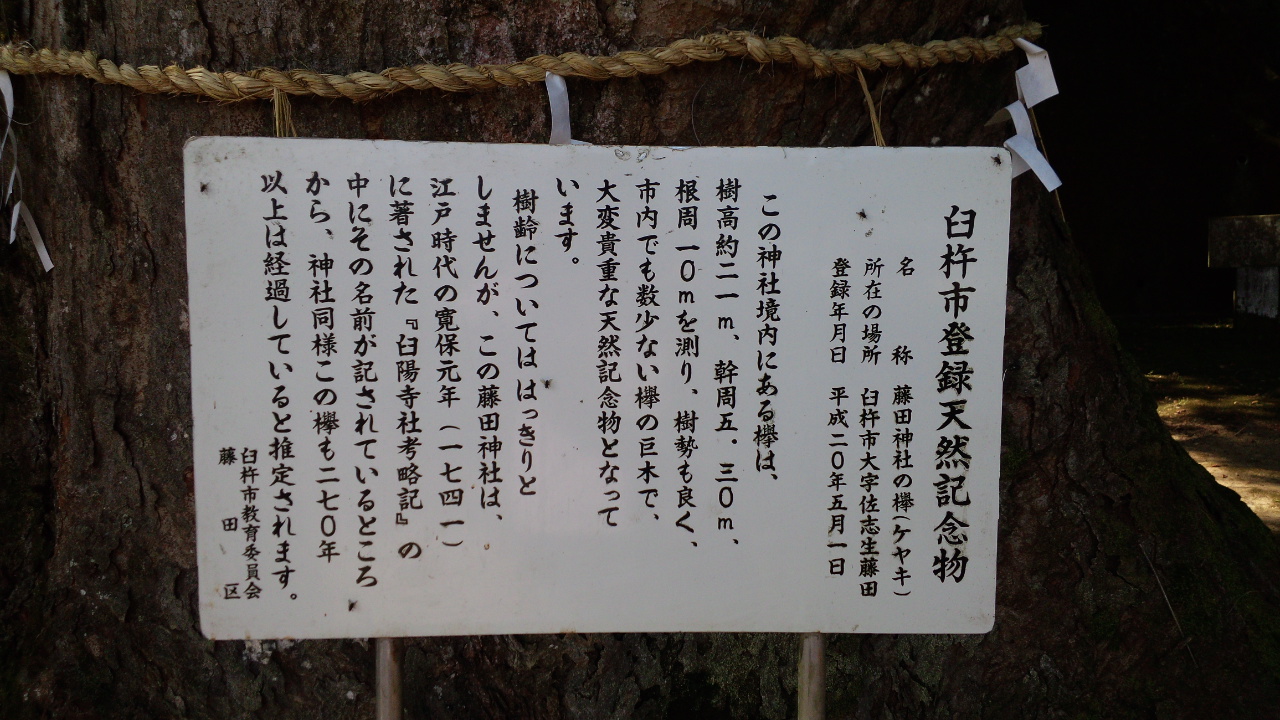 臼杵市登録天然記念物
名称 藤田神社の欅(ケヤキ)
所在の場所 臼杵市大字佐志生藤田
登録年月日 平成二0年五月一日
この神社境内にある欅は、
樹高約二一m、幹周五．三0m、
根周一0mを測り、樹勢も良く、
市内でも数少ない欅の巨木で、
大変貴重な天然記念物となって
います。
樹齢についてははっきりと
しませんが、この藤田神社は、
江戸時代の寛保元年（一七四一）
に著された『臼陽寺社考略記』の
中にその名前が記されているところ
から、神社同様この欅も二七0年
以上は経過していると推定されます。
臼杵市教育委員会
藤田区